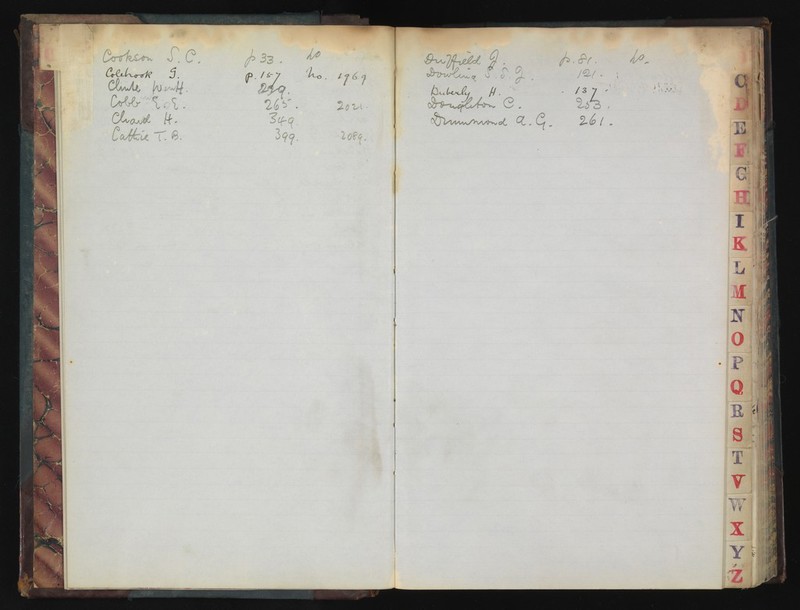 Cookson S. C. p 33. No
Colebrook G. p. 157 No. 1969
Clunes 259.
Cobb E. E. 265. 2021
Chard H. 349
Cattie T. B. 399. 2089.
Duffield J. p. 81. No.
Dowling S. J. 121.
Duberly H. 137.
Dangleton C. 253.
Drummond A. G. 261.
C
D
E
F
G
H
I
K
L
M
N
O
P
Q
R
S
T
V
W
X
Y
Z